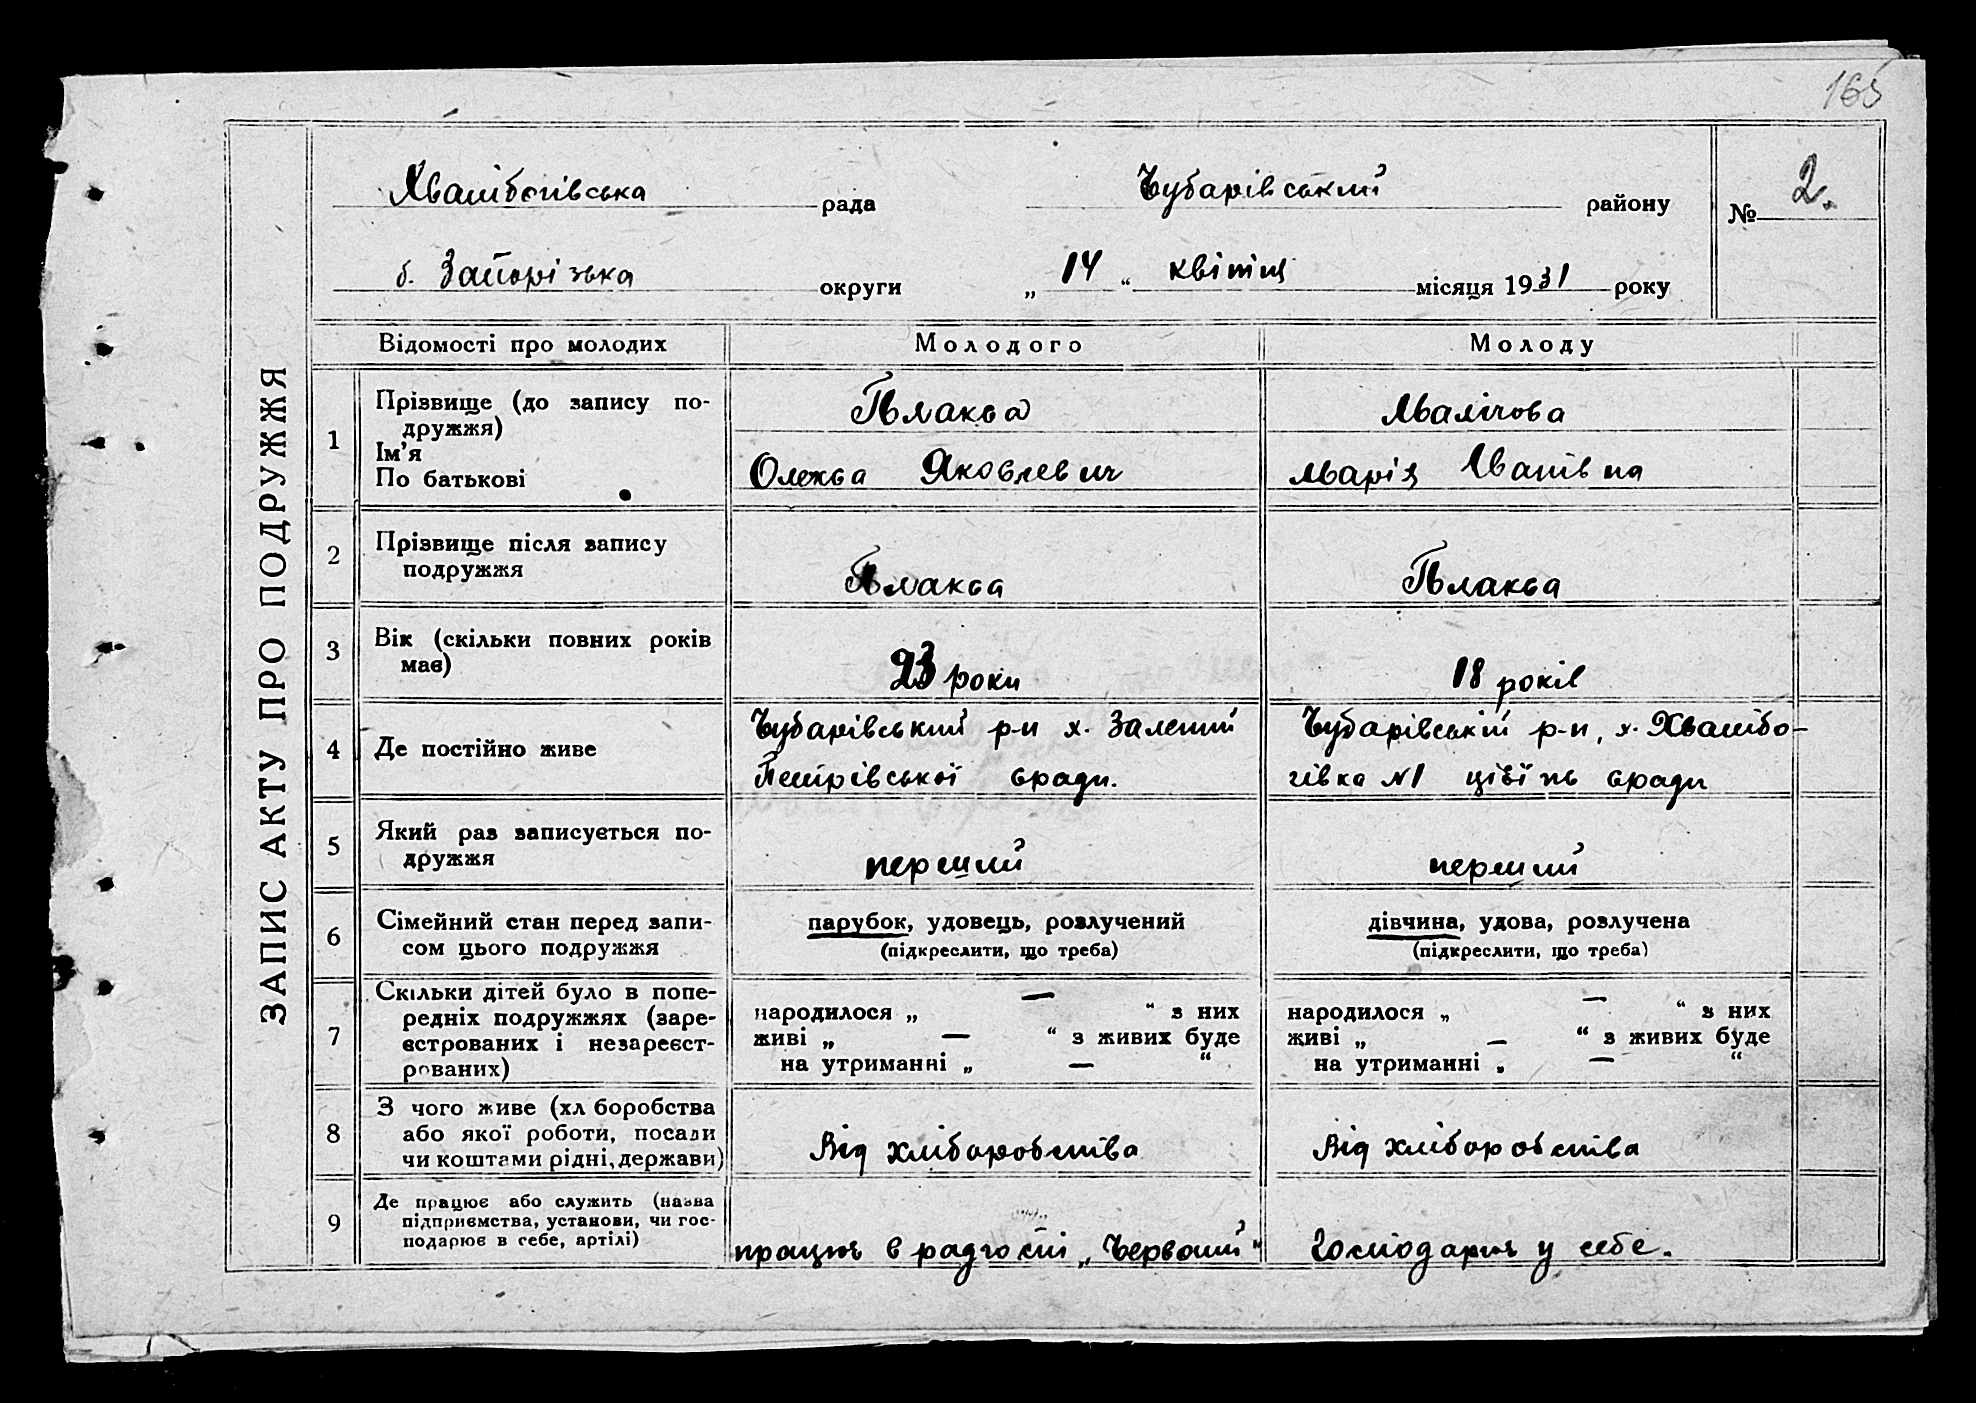 165
Хвалібогівська рада Чубарівський району № 2.
б. Запорізька округи „ 14 “ квітня місяця 1931 року
ЗАПИС АКТУ ПРО ПОДРУЖЖЯ
Відомості про молодих Молодого Молоду
1 Прізвище (до запису по-
дружжя)
Плакса
Ім’я
По батькові
Олекса Яковлевич Марія Іванівна
2 Прізвище після запису
подружжя
Плакса Плакса
3 Вік (скільки повних років
має)
23 роки 18 років
4 Де постійно живе
Чубарівський р-н х.
Петрівської сради.
Чубарівський р-н, х. Хвалібо-
гівка №1 сради
5 Який раз записується по-
дружжя
перший перший
6 Сімейний стан перед запи-
сом цього подружжя
парубок, удовець, розлучений
(підкреслити, що треба)
дівчина, удова, розлучена
(підкреслити, що треба)
7 Скільки дітей було в попе-
редніх подружжях (заре-
єстрованих і незареєст-
рованих)
народилося „ — “ з них
живі „ — “ з живих буде
на утриманні „ — “
народилося „ — “ з них
живі „ — “ з живих буде
на утриманні „ — “
8 З чого живе (хліборобства
або якої роботи, посади
чи коштами рідні, держави)
Від хліборобства Від хліборобства
9 Де працює або служить (назва
підприємства, установи, чи гос-
подарює в себе, артілі)
працює в радгоспі „Червоний“ Господарює у себе.